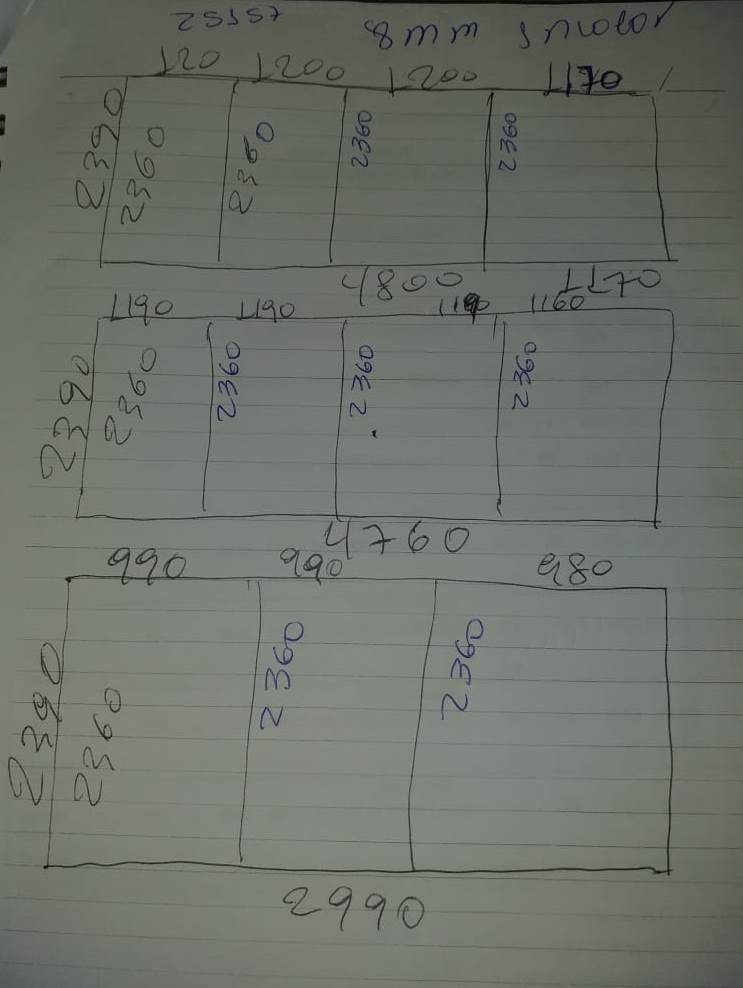 25157 8mm Incolor
120 1200 1200 1170
2390 2360 2360 2360 2360
4800 1170
1190 1190 1190 1160
2390 2360 2360 2360 2360
4760
990 990 980
2390 2360 2360 2360
2990